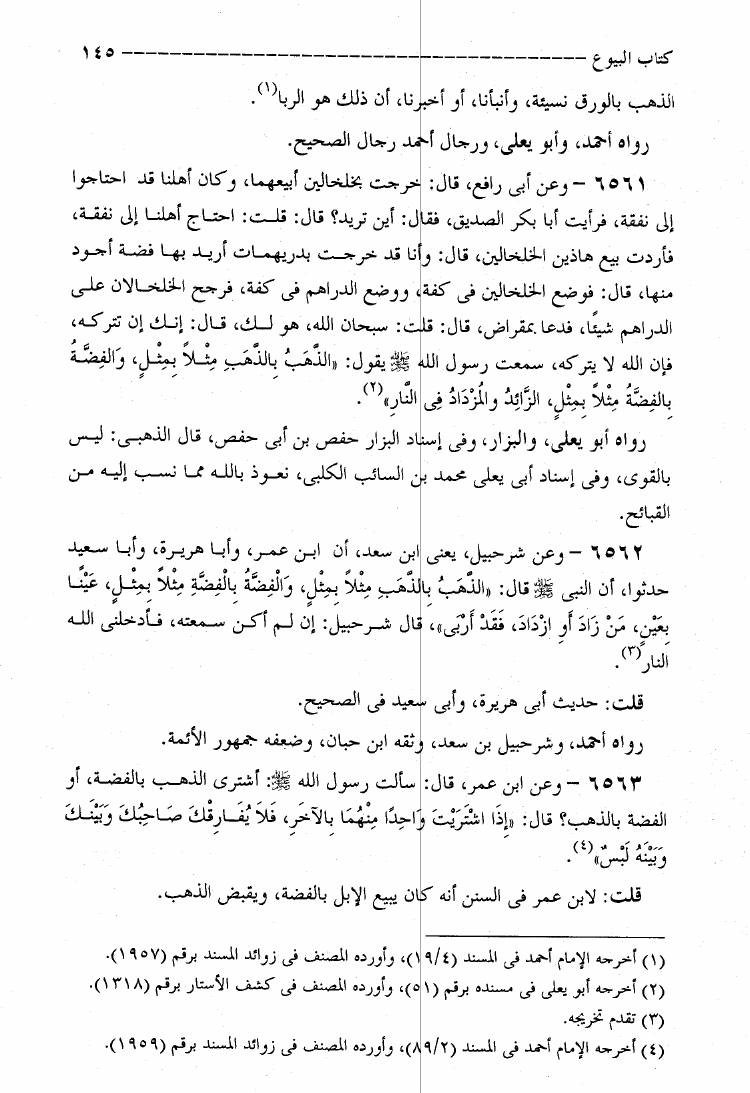 كتاب البيوع ------------------------------------------ ١٤٥
الذهب بالورق نسيئة، وأنبأنا، أو أخبرنا، أن ذلك هو الربا(١).
رواه أحمد، وأبو يعلى، ورجال أحمد رجال الصحيح.
٦٥٦١ - وعن أبى رافع، قال: خرجت بخلخالين أبيعهما، وكان أهلنا قد احتاجوا
إلى نفقة، فرأيت أبا بكر الصديق، فقال: أين تريد؟ قال: قلت: احتاج أهلنا إلى نفقة،
فأردت بيع هاذين الخلخالين، قال: وأنا قد خرجت بدريهمات أريد بها فضة أجود
منها، قال: فوضع الخلخالين فى كفة، ووضع الدراهم فى كفة، فرجح الخلخالان على
الدراهم شيئًا، فدعا بمقراض، قال: قلت: سبحان الله، هو لك، قال: إنك إن تتركه،
فإن الله لا يتركه، سمعت رسول الله ﷺ يقول: «الذَّهَبُ بِالذَّهَبِ مِثْلاً بِمِثْلٍ، وَالفِضَّةُ
بِالفِضَّةُ مِثْلاً بِمِثْلٍ، الزَّائِدُ والمُزْدَادُ فِى النَّارِ»(٢).
رواه أبو يعلى، والبزار، وفى إسناد البزار حفص بن أبى حفص، قال الذهبى: ليس
بالقوى، وفى إسناد أبى يعلى محمد بن السائب الكلبى، نعوذ بالله مما نسب إليه من
القبائح.
٦٥٦٢ - وعن شرحبيل، يعنى ابن سعد، أن ابن عمر، وأبا هريرة، وأبا سعيد
حدثوا، أن النبى ﷺ قال: «الذَّهَبُ بِالذَّهَبِ مِثْلاً بِمِثْلٍ، وَالْفِضَّةُ بِالْفِضَّةِ مِثْلاً بِمِثْلٍ، عَيْنًا
بِعَيْنٍ، مَنْ زَادَ أَوِ ازْدَادَ، فَقَدْ أَرْبَى»، قال شرحبيل: إن لم أكن سمعته، فأدخلنى الله
النار(٣).
قلت: حديث أبى هريرة، وأبى سعيد فى الصحيح.
رواه أحمد، وشرحبيل بن سعد، وثقه ابن حبان، وضعفه جمهور الأئمة.
٦٥٦٣ - وعن ابن عمر، قال: سألت رسول الله ﷺ: أشترى الذهب بالفضة، أو
الفضة بالذهب؟ قال: «إِذَا اشْتَرَيْتَ وَاحِدًا مِنْهُمَا بِالآخَرِ، فَلاَ يُفَارِقْكَ صَاحِبُكَ وَبَيْنَكَ
وَبَيْنَهُ لَبْسٌ»(٤).
قلت: لابن عمر فى السنن أنه كان يبيع الإبل بالفضة، ويقبض الذهب.
(١) أخرجه الإمام أحمد فى المسند (١٩/٤)، وأورده المصنف فى زوائد المسند برقم (١٩٥٧).
(٢) أخرجه أبو يعلى فى مسنده برقم (٥١)، وأورده المصنف فى كشف الأستار برقم (١٣١٨).
(٣) تقدم تخريجه.
(٤) أخرجه الإمام أحمد فى المسند (٨٩/٢)، وأورده المصنف فى زوائد المسند برقم (١٩٥٩).